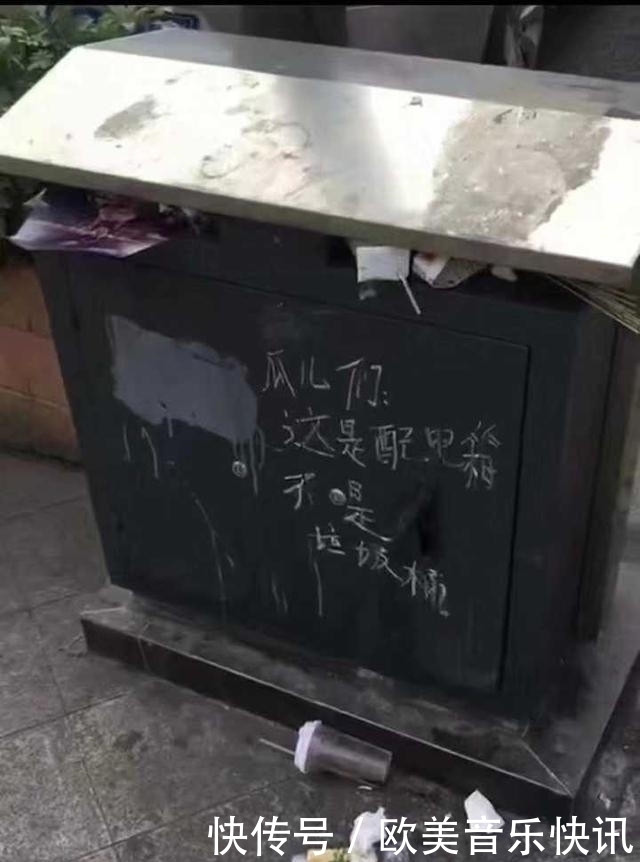 瓜儿们:
这是配电箱
不是
垃圾桶
快传号/欧美音乐快讯